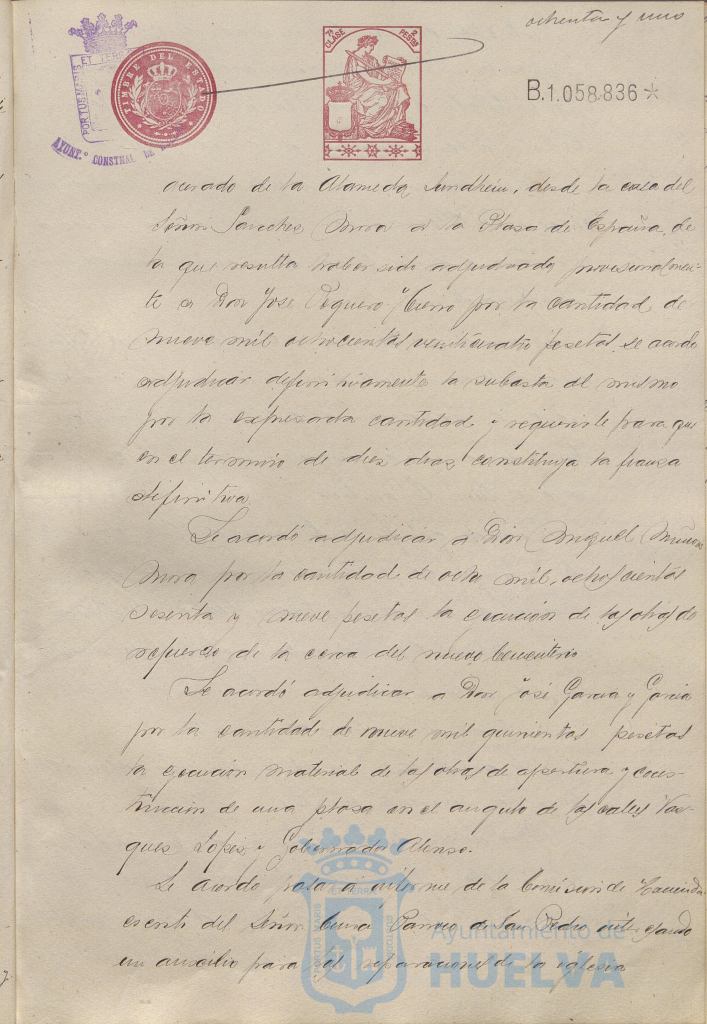 ochenta y uno
TIMBRE DEL ESTADO
7ª CLASE 2 PESTAS
B.1.058.836
AYUNT.º CONSTNAL DE
acerado de la Alameda Sundheim, desde la casa del
Señor Sanchez Mora á la Plaza de España, de
la que resulta haber sido adjudicado provisionalmen-
te a Don José Peguero por la cantidad de
nueve mil ochocientas veinticuatro pesetas, se acordó
adjudicar definitivamente la subasta al mismo
por la expresada cantidad y requerirle para que
en el termino de diez dias, constituya la fianza
definitiva
Se acordó adjudicar á Don Miguel
Mora por la cantidad de ocho mil, ochocientas
sesenta y nueve pesetas la ejecución de las obras de
refuerzo de la cerca del nuevo Cementerio
Se acordó adjudicar a Don José Garcia y Garcia
por la cantidad de nueve mil quinientas pesetas
la ejecucion material de las obras de apertura y cons-
truccion de una plaza en el angulo de las calles Vaz-
ques Lopez y Gobernador Alonso.
Se acordo pasa á informe de la Comision de Hacienda
escrito del Señor Cura Parroco de San Pedro
un auxilio para las reparaciones de la iglesia
Ayuntamiento de
HUELVA